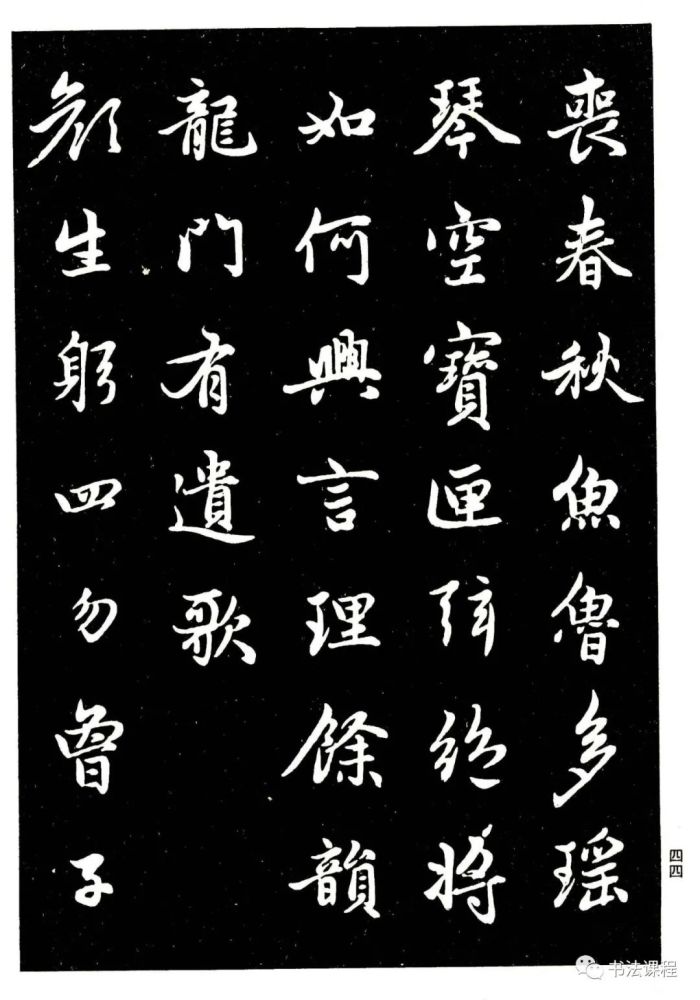 喪春秋魚魯多瑤
琴空寶匣弦絕將
如何興言理餘韻
龍門有遺歌
顏生躬四勿曾子
四四
书法课程